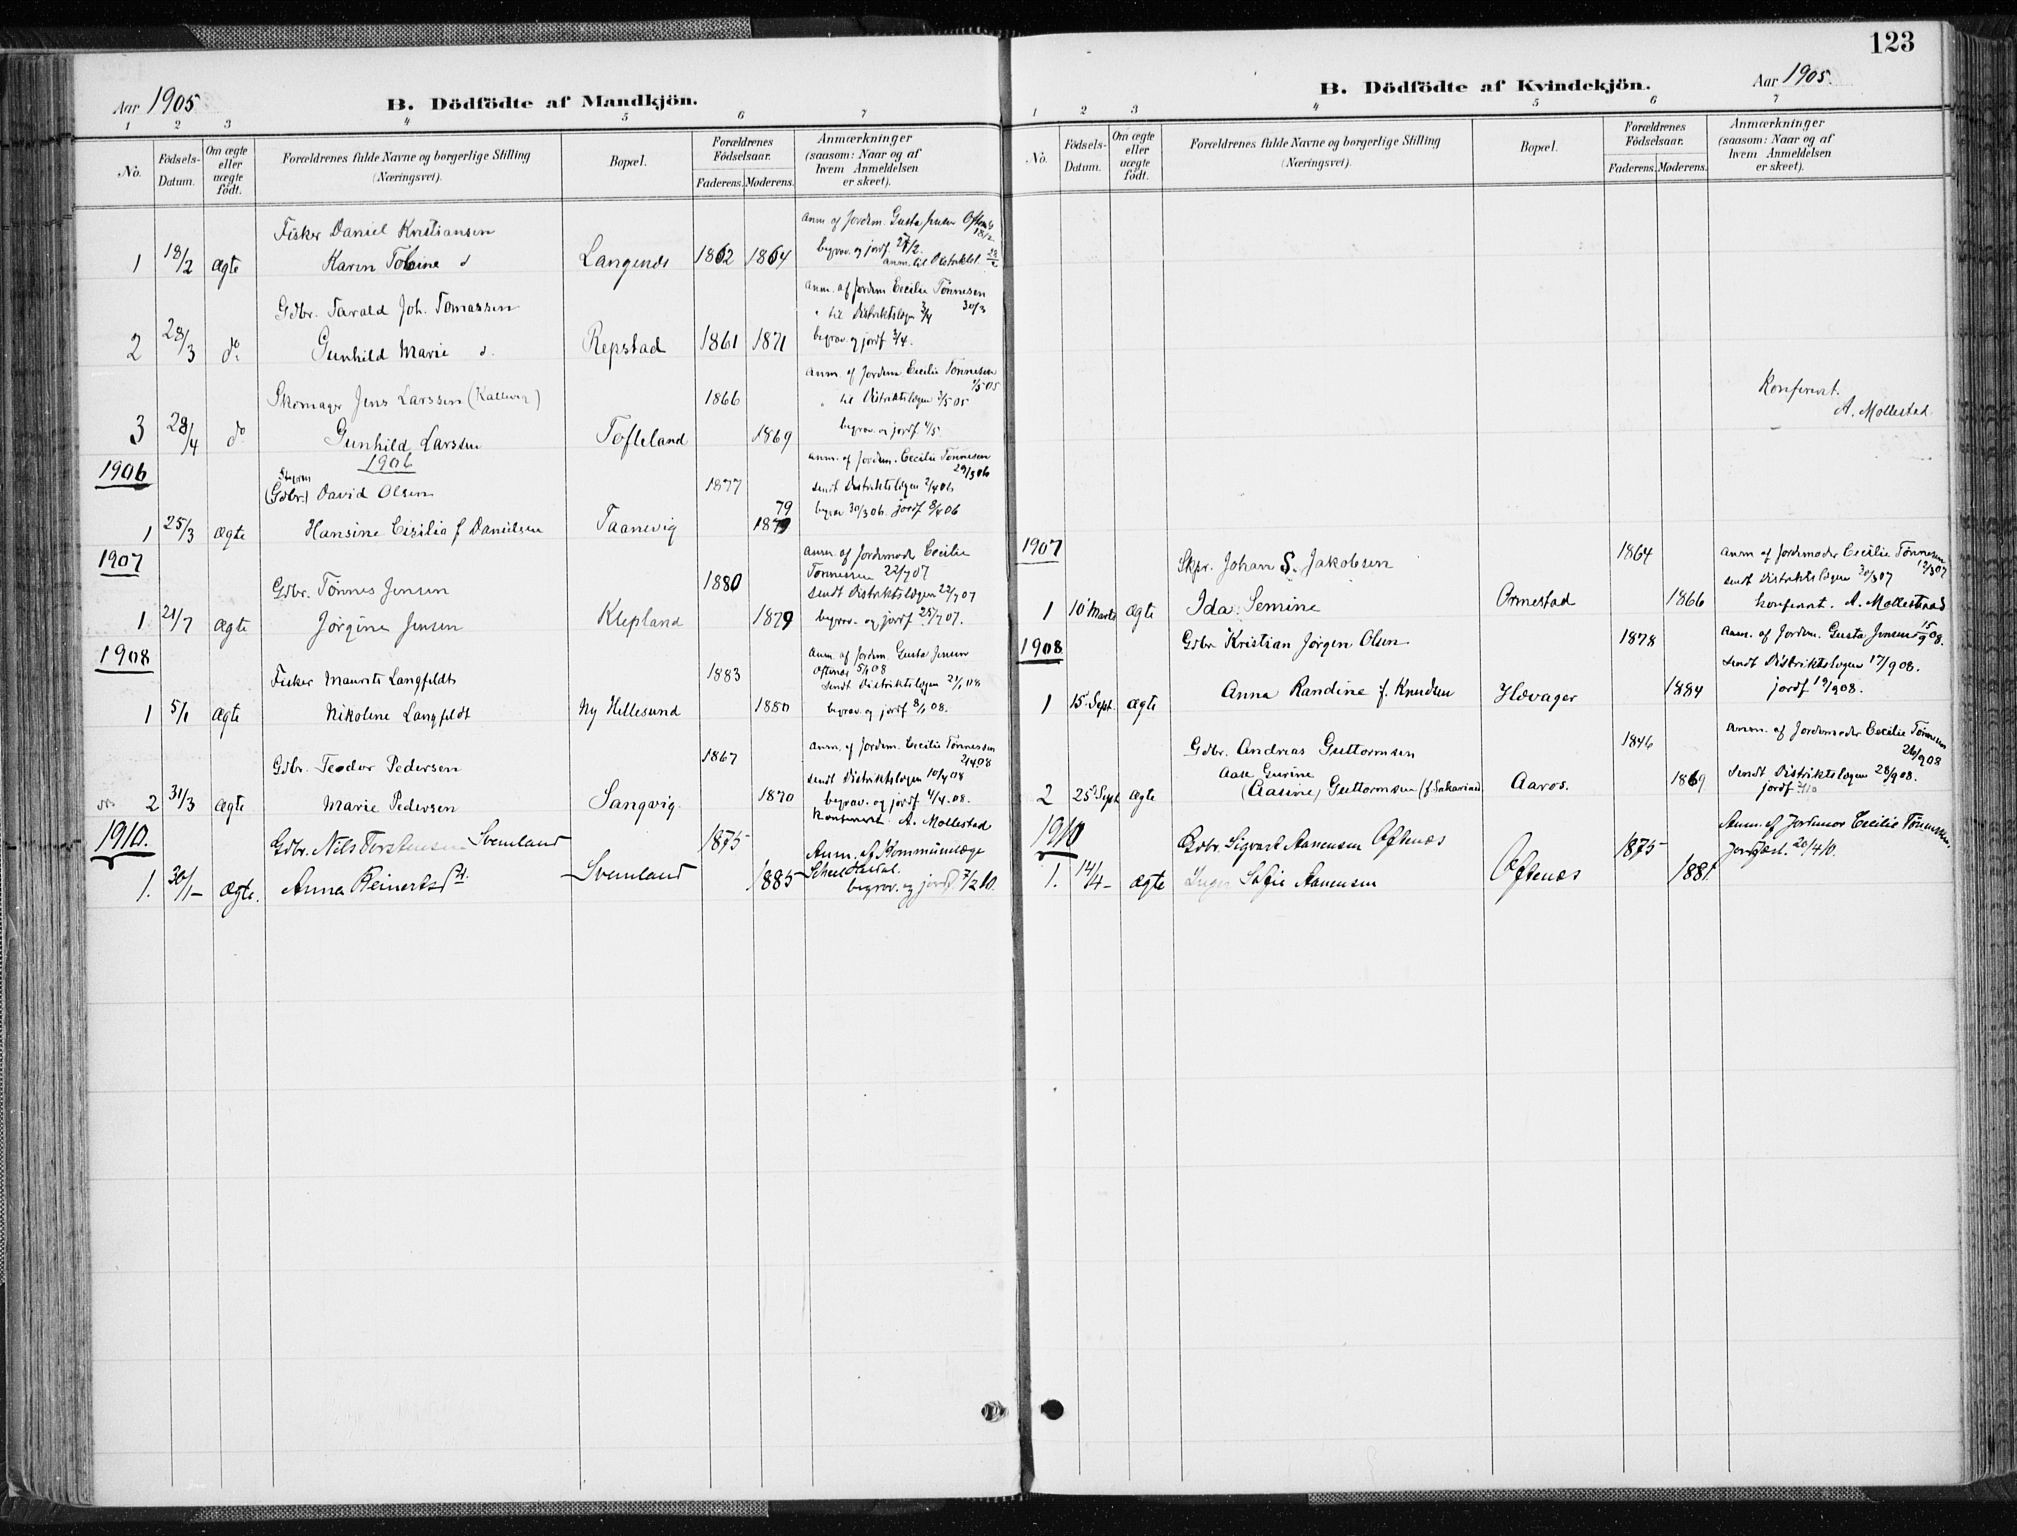 Aar 1905
B. Dödfödte af Mandkjön.
1 2 3 4 5 6 7
No.
Födsels-Datum.
Om ægte eller uægte født.
Forældrenes fulde Navne og borgerlige Stilling
(Næringsvei).
Bopæl.
Forældrenes Födselsaar.
Faderens. Moderens.
Anmærkninger
(saasom: Naar og af
hvem Anmeldelsen
er skeet).
Fisker Daniel Kristiansen
anm af Jordem. Gusta Jensen
18/2
1 18/2 ægte Karin Tobine d Langenes 1862 1864 begrav. og jordf.
anm. til Distriktsl.
Gdbr. Tarald Joh. Tomassen
anm. af Jordem Cecilie Tønnesen
30/3
" til Distriktslægen 3/4
2 28/3 do Gunhild Marie d. Repstad 1861 1871 begrav. og jordf 3/4.
Skomager Jens Larssen (Kallevig) 1866
anm. af Jordem Cecilie Tønnesen
1/5 05
" til Distriktslægen 3/5 05
3 28/4 do Gunhild Larssen Tofteland 1869 begrav. og jordf 4/5
1906
1906
(Gdbr.) David Olsen 1877
anm. af Jordem. Cecilie Tønnesen
29/3 06
sendt Distriktslægen 2/4 06
1 25/3 ægte Hansine Cecilia f Danielsen Taanevig 79 1879 begrav 30/3 06. jordf 9/4 06
1907
Gdbr. Tønnes Jensen 1880
anm. af Jordemod Cecilie
Tønnesen 22/7 07
sendt Distriktslægen 22/7 07
1 21/7 ægte Jørgine Jensen Klepland 1879 begrav. og jordf 25/7 07.
1908
Fisker Maurits Langfeldt 1883
anm. af Jordem Gusta Jensen
Oftenæs 5/1 08
sendt Distriktslægen 21/1 08
1 5/1 ægte Nikoline Langfeldt Ny Hellesund 1880 begrav. og jordf 8/1 08.
Gdbr. Teodor Pedersen 1867
anm. af Jordem. Cecilie Tønnessen
2/4 08
sendt Distriktslægen 10/4 08
2 31/3 ægte Marie Pedersen Sangvig. 1870 begrav. og jordf 4/4. 08.
Konfereret. A. Mollestad
1910.
Gdbr. Nils Terstensen Svemland 1875
Anm. af Kommunelæge
1. 30/1 ægte. Anna Reinertsdt. Svemland 1885
begrav. og jordf. 7/2 10.
123
B. Dödfödte af Kvindekjön.
Aar 1905.
1 2 3 4 5 6 7
No.
Födsels-Datum.
Om ægte eller uægte født.
Forældrenes fulde Navne og borgerlige Stilling
(Næringsvei).
Bopæl.
Forældrenes Födselsaar.
Faderens. Moderens.
Anmærkninger
(saasom: Naar og af
hvem Anmeldelsen
er skeet).
Konfereret.
A. Mollestad
1907
Skpr. Johan S. Jakobsen 1864
anm af Jordemoder Cecilie Tønnesen
12/3 07
sendt Distriktslægen 30/3 07
1 10 Marts ægte Ida Semine Ormestad 1866 Konfereret. A. Mollestad
1908
Gdbr Kristian Jørgen Olsen 1878
anm. af Jordem. Gusta Jensen 15/9 08.
sendt Distriktslægen 17/9 08.
1 15 Sept. ægte Anna Randine f. Knudsen Høvager 1884 jordf 19/9 08.
Gdbr. Andreas Guttormsen 1846
anm. af Jordemoder Cecilie Tønnesen
26/9 08
Aase Gurine
sendt Distriktslægen 28/9 08.
2 25 Sept ægte (Aasine) Guttormsen Aaros. 1869 jordf
1910
Gdbr. Sigvart Aanensen Oftenæs 1875
Anm. af Jordemor Cecilie Tønnessen
Jordfæst. 20/4 10.
1. 14/4 ægte Inger Sofie Aanensen Oftenæs 1881